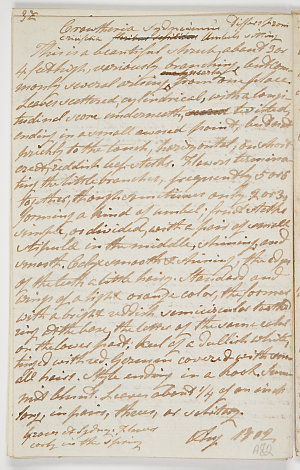 32
Differs from
This is a beautiful shrub, about 3 or
4 feet high, variously branching, but com-
monly several arising from one place.
Leaves scattered, cylindrical, with a longi-
tudinal score underneath,
ending in a small awned point, hard and
prickly to the touch, horizontal, on short
erect reddish leafstalks. Flowers termina-
ting the little branches, frequently 5 or 6
together, though sometimes only 2 or 3,
forming a kind of umbel: fruitstalks
simple, or divided, with a pair of small
stipulæ in the middle, shining, and
smooth. Calyx smooth & shining, the edges
of the teeth a little hairy. Standard and
wings of a light orange color, the former
with a bright reddish semicircular
ring at the base, the latter of the same color
on the lower part. Keel of a dullish white,
tinged with red. Germen covered with
hairs. Style ending in a hook. Summit
not blunt. Leaves about 1/4 of an inch
long, in pairs, threes, or solitary.
Grows at Sydney. Flowers
early in the Spring
Augt 1802